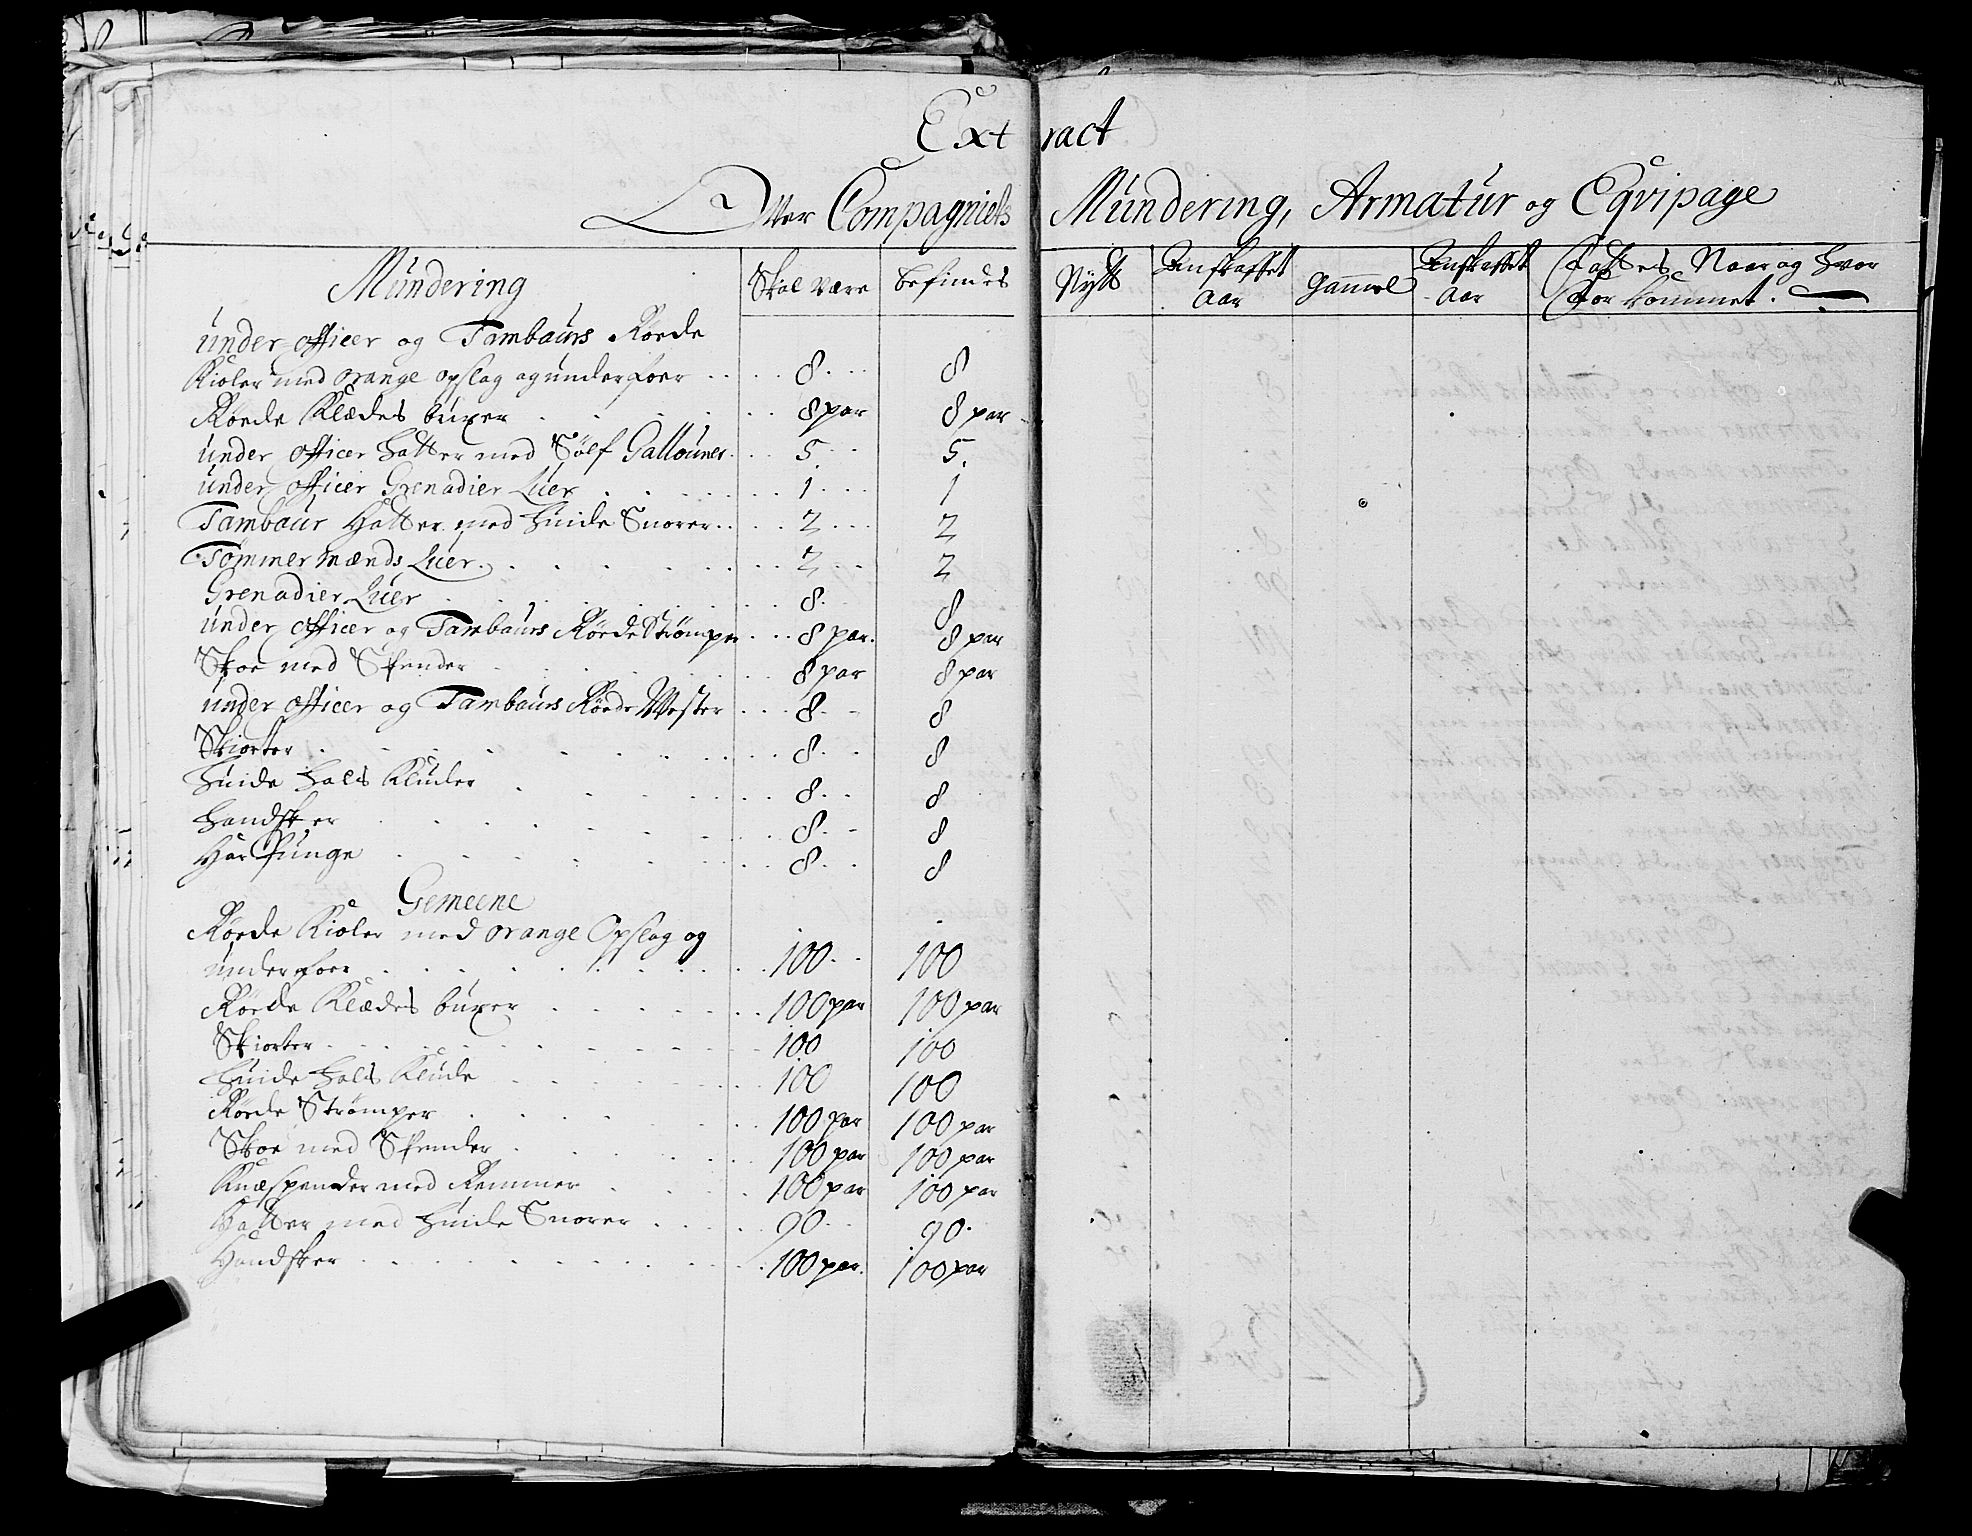 Extract
Over Compagniets Mundering, Armatur og Eqvipage
Mundering Skal være befindes Nytt Anskaffet Aar Gammel Anskaffet Aar Fattes Naar og hvor for kommet.
under officer og Tambaurs Røede
Kioler med orange opslag og underfoer 8 8
Røede Klædes buxer 8 par 8 par
under officer hatter med Sølf Gallouner 5 5
under officer Grenadier Luer 1 1
Tambaur Hatter med huide Snorer 2 2
Tømmermænds Luer 2 2
Grenadier Luer 8 8
under officer og Tambaurs Røede Strømper 8 par 8 par
Skoe med Spender 8 par 8 par
under officer og Tambaurs Røede Wester 8 8
Skiorter 8 8
huide hals Kluder 8 8
handsker 8 8
Har Punge 8 8
Gemeene
Røede Kioler med orange Opslag og
underfoer 100 100
Røede Klædes buxer 100 par 100 par
Skiorter 100 100
huide hals Klude 100 100
Røede Strømper 100 par 100 par
Skoe med Spender 100 par 100 par
Knæspender med Remmer 100 par 100 par
Hatter med huide Snorer 90 90
Handsker 100 par 100 par